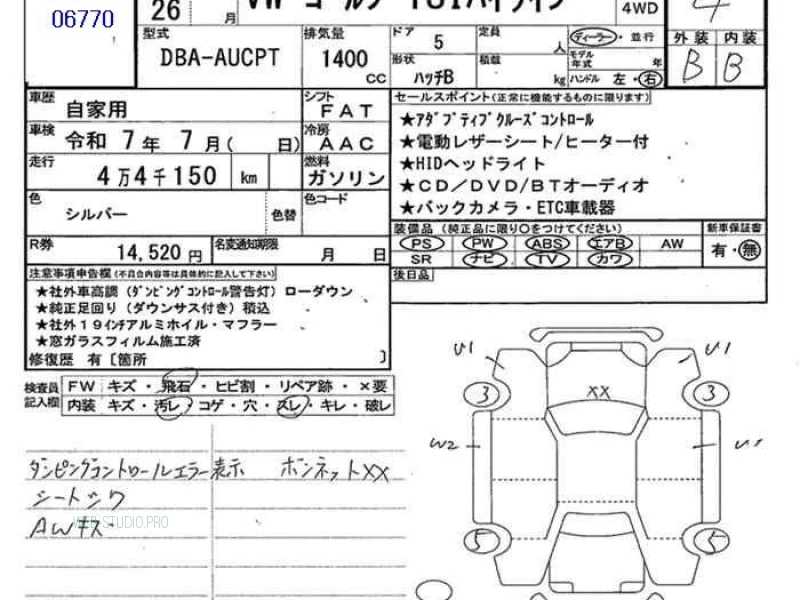 06770
26 月 VW ゴールフ TSIハイライン 4WD 4
型式 DBA-AUCPT 排気量 1400 CC ドア 5 定員 人 ディーラー・並行 外装 内装
形状 ハッチB 積載 kg モデル年式 年 ハンドル 左・右 B B
車歴 自家用 シフト FAT セールスポイント(正常に機能するものに限ります)
車検 令和 7年 7月( 日) 冷房 AAC ★アダプティブクルーズコントロール
★電動レザーシート/ヒーター付
走行 4万4千150 km 燃料 ガソリン ★HIDヘッドライト
★CD/DVD/BTオーディオ
色 シルバー 色替 色コード ★バックカメラ・ETC車載器
装備品(純正品に限り○をつけてください) 新車保証書
R券 14,520円 名変通知期限 月 日 PS PW ABS エアB AW 有・無
SR ナビ TV カワ
注意事項申告欄(不具合内容等は具体的に記入して下さい) 後日品
★社外車高調(ダンピングコントロール警告灯)ローダウン
★純正足回り(ダウンサス付き)積込
★社外19インチアルミホイル・マフラー
★窓ガラスフィルム施工済
修復歴 有〔箇所 〕
検査員記入欄 FW キズ・飛石・ヒビ割・リペア跡・×要
内装 キズ・汚レ・コゲ・穴・スレ・キレ・破レ
U1 U1
3 XX 3
W2
ダンピングコントロールエラー表示 ボンネットXX
シートシワ
AWキズ
WEB-STUDIO.PRO
5 5